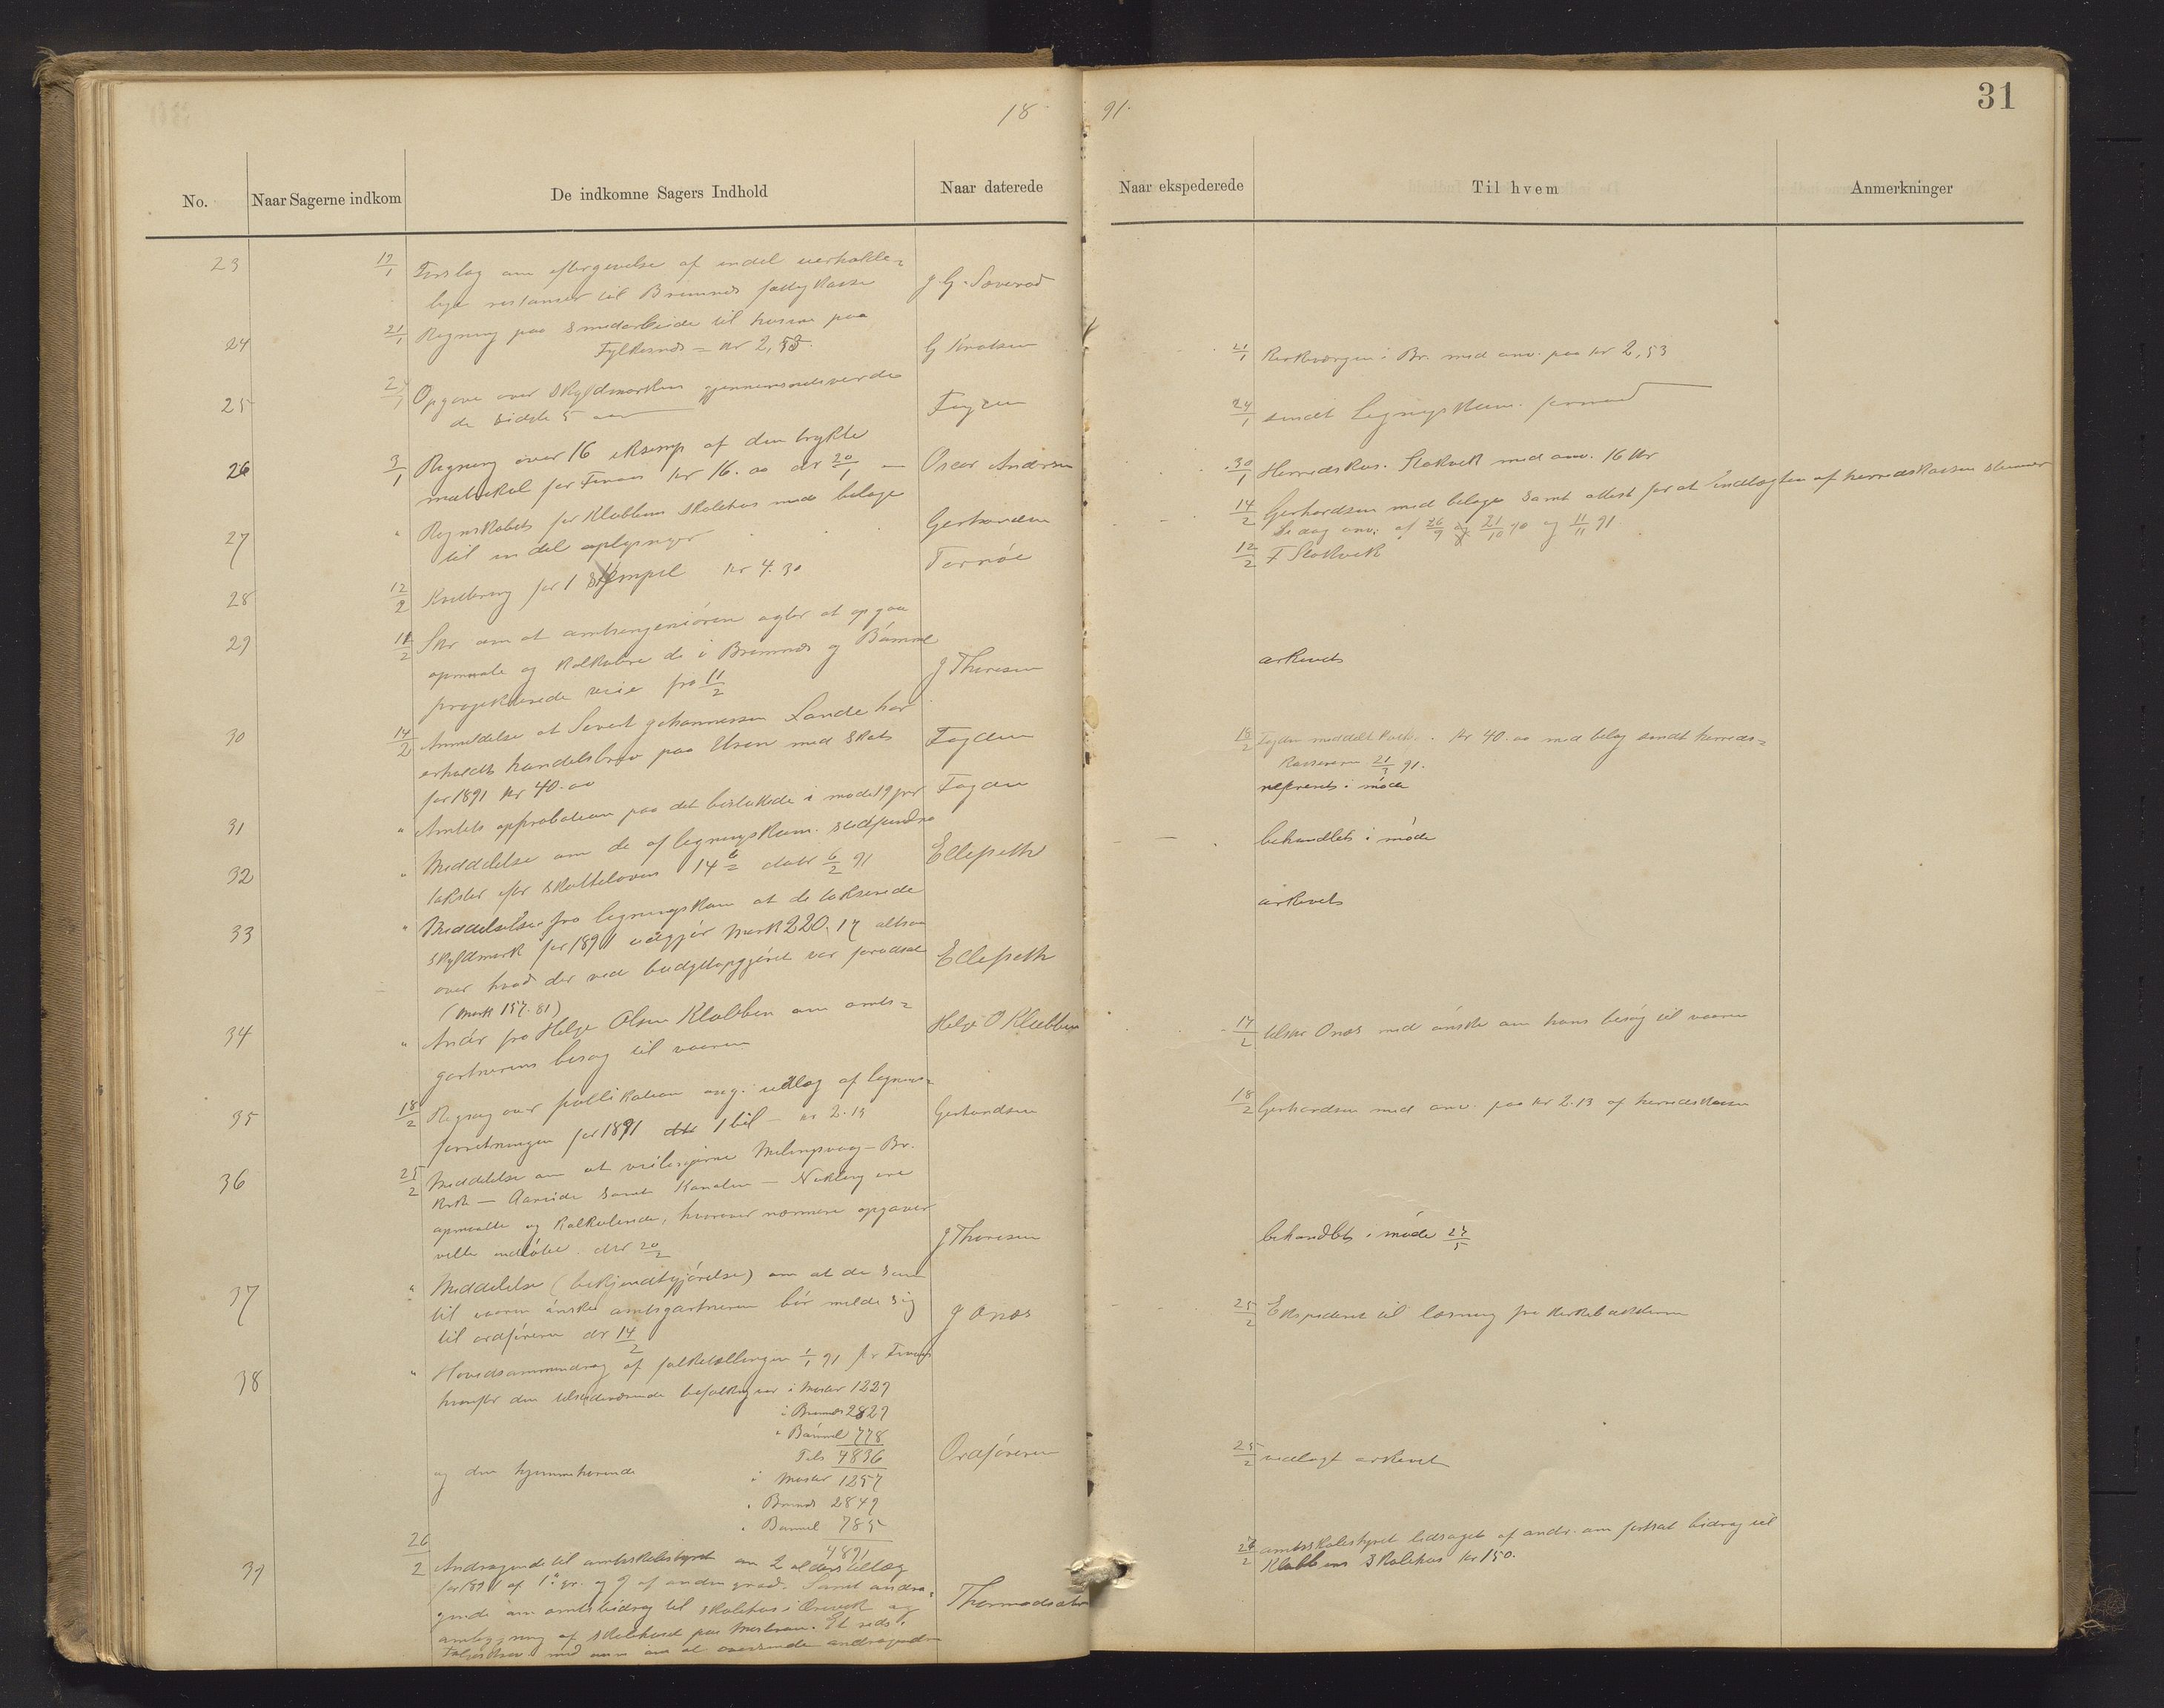 18
91.
31
No.
Naar Sagerne indkom
De indkomne Sagers Indhold
Naar daterede
Naar ekspederede
Til hvem
Anmerkninger
23 17/1 Forslag om eftergivelse af endel uerholde=
lige restancer til Bremnes fattigkasse
24 21/1 Regning paa smedarbeide til husene paa
Fylkesnes = Kr 2,53. G Knutsen 21/1 Kirkeværgen i Br. med anv. paa kr 2,53
25 Opgave over skyldmarken gjennemsnitsverdi
de sidste 5 aar Fogden 24/1 sendt Ligningskom. formand
26 3/1 Regning over 16 eksemp af den trykte
matrikul for Finaas kr 16.00 dr 20/1 — Oscar Andersen 30/1 Herredskas. Stokvik med anv. 16 Kr
27 " Regnskabet for Klubbens skolehus med bilage
til endel oplysninger Gerhardsen 14/2 Gerhardsen med bilage samt attest for at indtægten af herredskassen stemmer
anv. af 26/9 og 21/10 90 og 11/11 91
28 12/2 Kvittering for 1 stempel kr 4.30 Tornöe 12/2 F Stokvik
29 11/2 Skr om at amtsingeniören agter at opgaa
opmaale og kalkulere de i Bremnes og Bömmel
projekterede veie fra 11/2 J Thoresen arkivets
30 14/2 Anmeldelse at Sivert Johannessen Lande har
erholdt handelsbrev paa med skat
for 1891 kr 40.00 Fogden 18/2 Fogden meddelt kr 40.00 med bilag sendt herreds=
kasseren 21/3 91.
31 " Amtets approbation paa det besluttede i möde 19 Fogden referets i möde
32 " Meddelelse om de af ligningskom. stedfundne
takster efter skatteloven 14 6 dater 6/2 91 Ellefseth behandlets i möde
33 " Meddelelse fra ligningskom at de takserede
skyldmark for 1891 udgjör mark 220.17 altsaa
over hvad der ved budgetopgjöret var forudsat
(mark 157.81) Ellefseth arkivets
34 " Andr fra Helge Olsen Klubben om amts=
gartnerens besøg til vaaren Helge O Klubben 17/2 tilskr Onæs med önske om hans besög til vaaren
35 18/2 Regning over publikation ang. udlæg af lignings=
forretningen for 1891 1 bil — kr 2.13 Gerhardsen 18/2 Gerhardsen med anv. paa kr 2.13 af herredskassen
36 25/2 Meddelelse om at veilinjerne Mælingsvaag – Br.
Kirke – samt Kanalen –
opmaalte og kalkulerede, hvorover nærmere opgaver
ville indlöbe. dr 20/2 J Thoresen behandlets i möde 27/5
37 " Meddelelse (bekjendtgjörelse) om at de som
til vaaren önsker amtsgartneren bör melde sig
til ordföreren dr 14/2 J Onæs 25/2 Ekspederet til læsning fra kirkebakkerne
38 " Hovedsammendrag af folketællingen 1/1 91 for Finaas
hvorefter den tilstedeværende befolkning var i Moster 1229
i Bremnes 2829
" Bömmel 778
Tils 4836
og den hjemmehörende i Moster 1257
" Bremnes 2849
" Bömmel 785
4891
Ordföreren 25/2 vedlagt arkivet
39 26/2 Andragende til amtsskolestyret om 2 alderstillæg
for 1891 af 1ste gr. og 9 af anden grad. Samt andra=
gende om amtsbidrag til skolehus i og
ombygning af skolehuset paa
med om at oversende andragendet
26/2 amtsskolestyret ledsaget af andr. om fortsat bidrag til
Klubbens Skolehus kr 150.